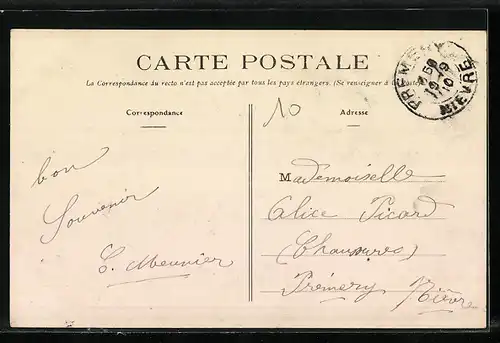 CARTE POSTALE
La Correspondance du recto n'est pas acceptée par tous les pays étrangers. (Se renseigner à
Correspondance
Adresse
10
PRÉMERY NIÈVRE
bon
Souvenir
C. Meunier
Mademoiselle
Alice Picard
Prémery Nièvre